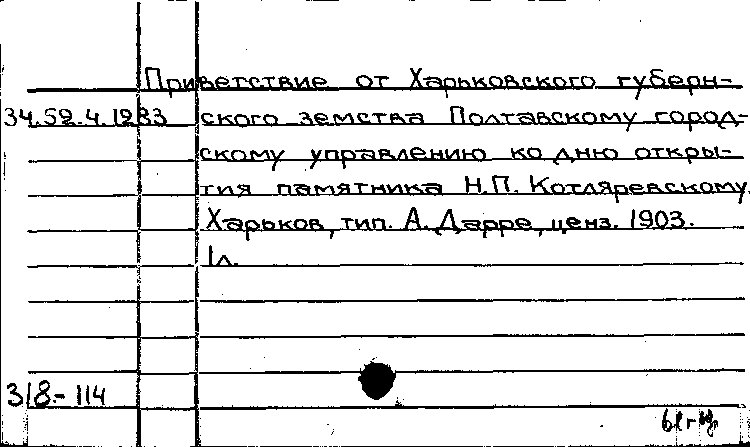 Приветствие от Харьковского губерн-
34.52.4.1233 ского земства Полтавскому город-
скому управлению ко дню откры-
тия памятника Н.П. Котляревскому.
Харьков, тип. А. Дарре, ценз. 1903.
1л.
318-114